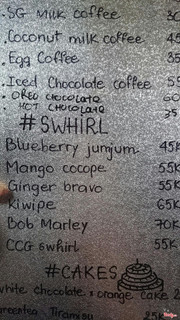 .SG Milk coffee 30
.Coconut milk coffee 45
.Egg Coffee 35
.Iced Chocolate coffee 55
. OREO CHOCOLATE 60
HOT CHOCOLATE 35
#SWHIRL
Blueberry jumjum 45K
Mango cocope 55K
Ginger bravo 55K
Kiwipe 65K
Bob Marley 70K
CCG swhirl 55K
#CAKES
white chocolate & orange cake 2
Greentea . Tiramisu 25K